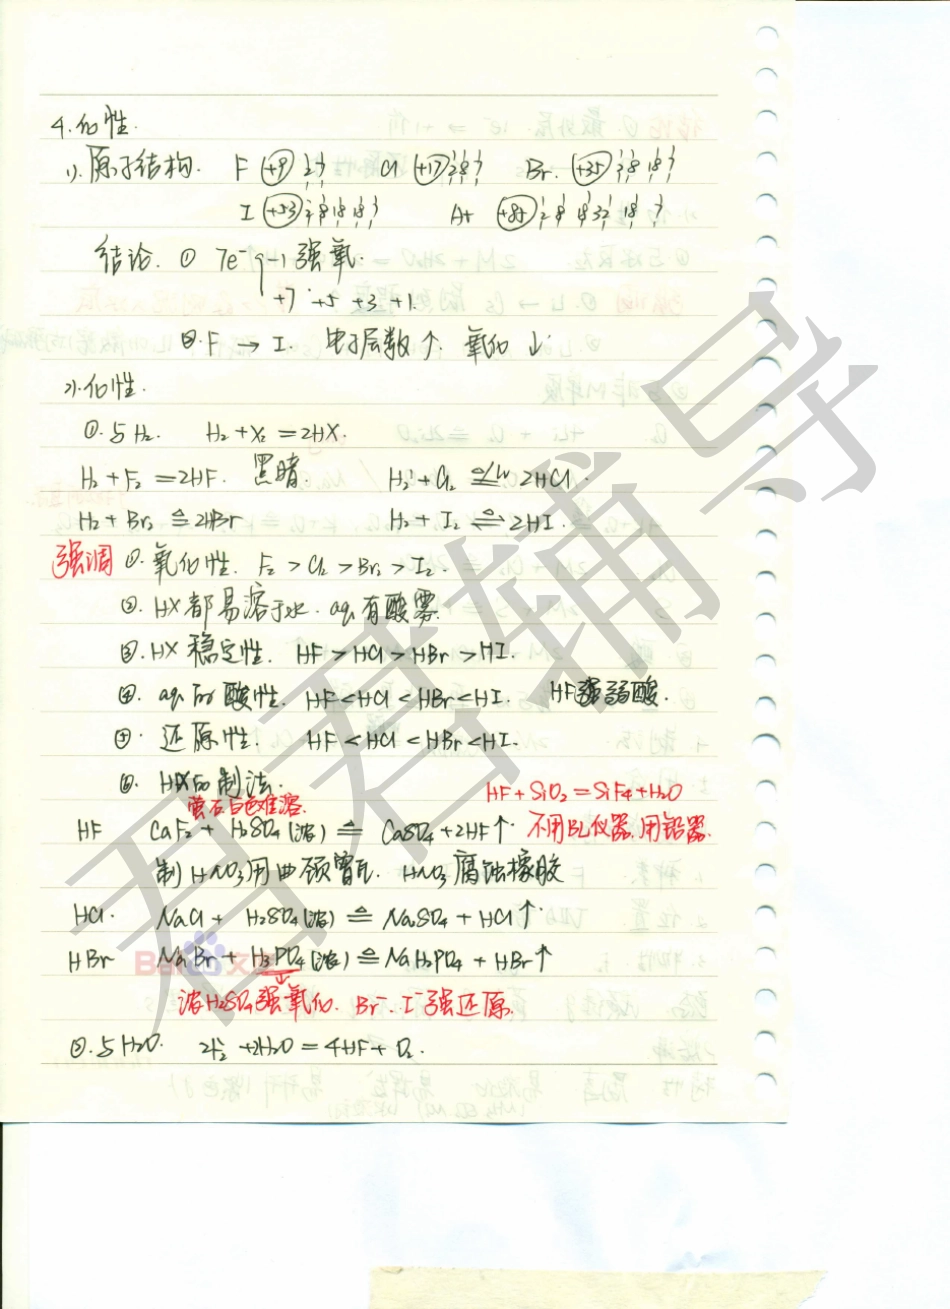 4.化性.
1).原子结构. F (+9) 2 7 Cl (+17) 2 8 7 Br. (+35) 2 8 18 7
I (+53) 2 8 18 18 7 At (+85) 2 8 18 32 18 7
结论. ① 7e⁻ 得1 强氧.
+7 +5 +3 +1
②.F → I. 电子层数↑. 氧化↓
2).化性.
①.与H₂. H₂+X₂=2HX.
H₂+F₂=2HF. 黑暗. H₂+Cl₂ 点/hν 2HCl.
H₂+Br₂ ≜ 2HBr H₂+I₂ ⇌ 2HI.
强调 ①.氧化性. F₂>Cl₂>Br₂>I₂.
②.HX都易溶于水. aq.有酸雾.
③.HX稳定性. HF>HCl>HBr>HI.
④.aq的酸性. HF<HCl<HBr<HI. HF弱酸.
⑤.还原性. HF<HCl<HBr<HI.
⑥.HX的制法.
萤石白色难溶. HF+SiO₂=SiF₄+H₂O
HF CaF₂+H₂SO₄(浓) ≜ CaSO₄+2HF↑. 不用BL仪器.用铅器.
制HNO₃用曲颈甑. HNO₃腐蚀橡胶
HCl. NaCl+H₂SO₄(浓) ≜ Na₂SO₄+HCl↑.
HBr NaBr+H₃PO₄(浓) ≜ NaH₂PO₄+HBr↑
浓H₂SO₄强氧化. Br⁻.I⁻强还原.
②.与H₂O. 2F₂+2H₂O=4HF+O₂.
君君辅导